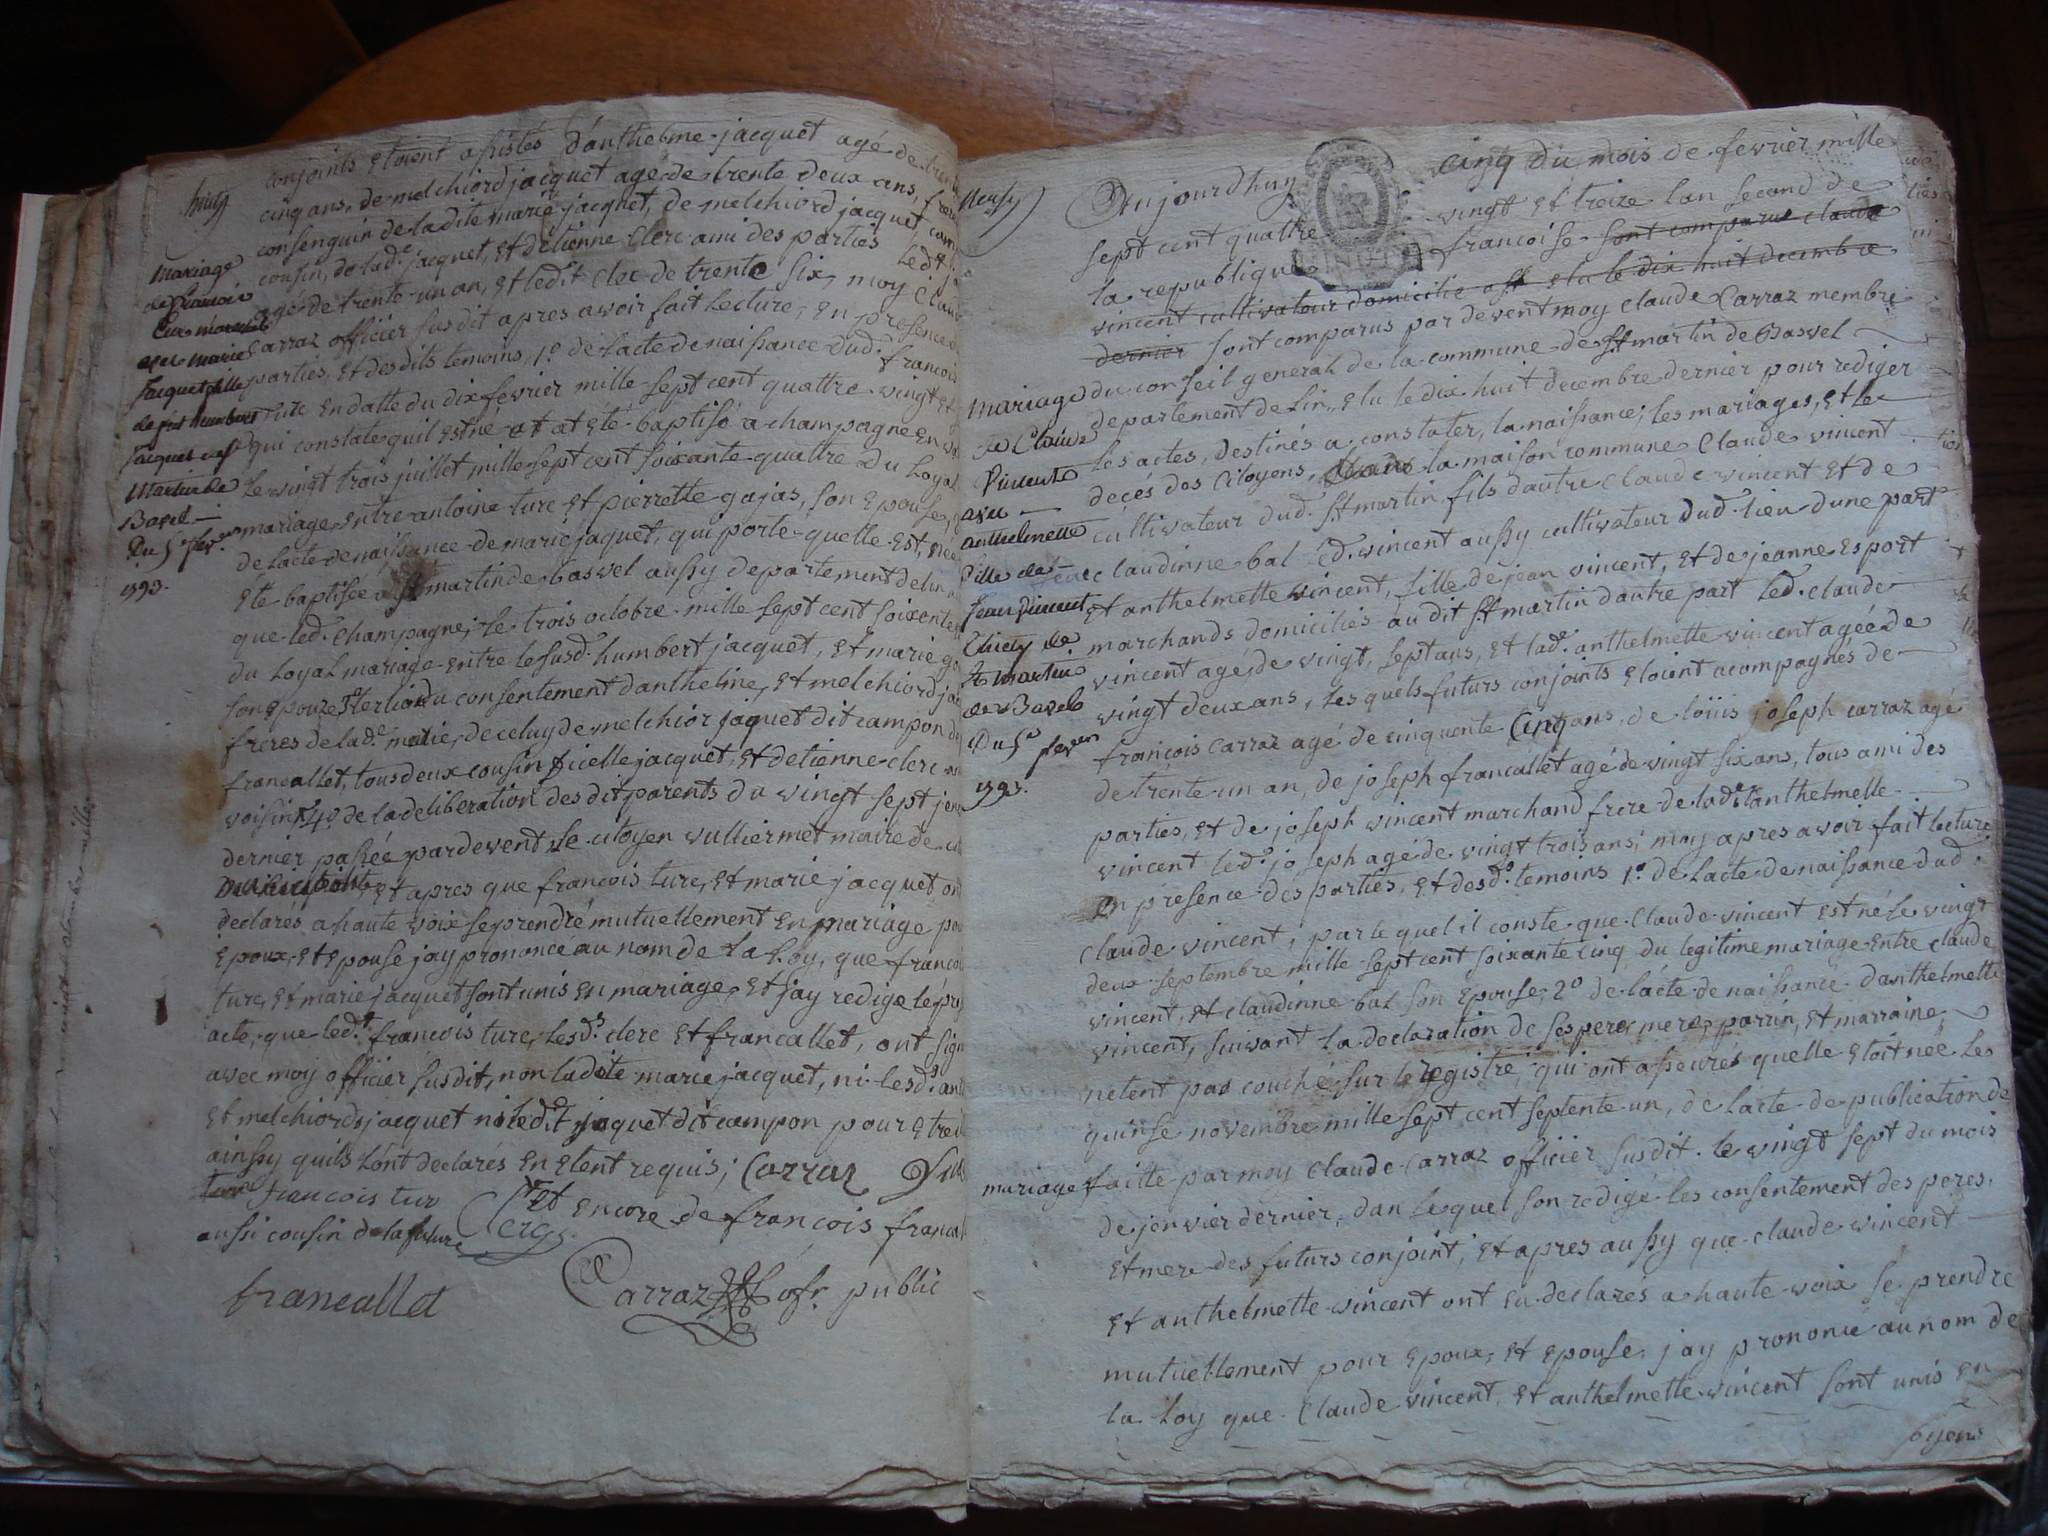 huity
conjoints etoient assistés d'anthelme jacquet agé de trente
cinq ans, de melchiord jacquet age de trente deux ans, freres
consenguin de ladite marie jacquet, de melchiord jacquet, camp
cousin, de lad.e jacquet, et détienne clerc ami des parties led.t
agé de trente un an, et led.t clec de trente six, moy claude
carraz officier susdit apres avoir fait lecture, en presence des
parties, et desdits temoins, 1.o de lacte de naissance dud. francois
turc en datte du dix fevrier mille sept cent quattre vingt et
qui constate quil est né et at été baptisé a champagne en
le vingt trois juillet mille sept cent soixante quattre du loyal
mariage entre antoine turc et pierrette gojas, son epouse,
de lacte de naissance de marie jaquet, qui porte quelle est née
été baptisée a st martin de basvel aussy departement de lin
que led. champagne, le trois octobre mille sept cent soixente
du loyal mariage entre lesusd. humbert jacquet, et marie
son epouze 3o du consentement danthelme, et melchiord jac
freres de lad.e marie, de celuy de melchior jaquet dit campon
francallet, tous deux cousin jacquet, et detienne clerc
voisin 4o de la deliberation des dit parents du vingt sept jen
dernier passée pardevent le citoyen vulliermet maire de
et apres que francois turc, et marie jacquet ont
declarés a haute voix se prendre mutuellement en mariage pour
epoux, et epouse jay prononce au nom de la loy, que francois
turc, et marie jacquet sont unis en mariage, et jay redige le pre
acte, que led.t francois turc, les d.s clerc et francallet, ont sign
avec moy officier susdit, non ladite marie jacquet, ni les d.s an
et melchiords jacquet ni led.t jaquet dit campon pour etre
ainssy quils lont declarés en etent requis; Carraz
francois tur
Clerc
et encore de francois francal
aussi cousin de la future
francallet
Carraz ofr. public
Mariage
de francois
turc
avec marie
Jacquet fille
de feu humbert
Jacquet de St
Martin de
Bavel
Du 5e fevrier
1793.
Neufy
Aujourdhuy cinq du mois de fevrier mille
sept cent quattre vingt et treize lan second de
la republique francoise sont comparus claude
vincent cultivateur domicilié elu le dix huit decembre
dernier sont comparus par devent moy claude Carraz membre
du conseil general de la commune de st martin de Basvel
departement de lin, elu le dix huit decembre dernier pour rediger
les actes, destinés a constater, la naissance, les mariages, et le
decés des citoyens, dans la maison commune Claude vincent
cultivateur dud. st martin fils dautre claude vincent et de
claudinne bal led. vincent aussy cultivateur dud. lieu dune part
et anthelmette vincent, fille de jean vincent, et de jeanne esport
marchands domiciliés audit st martin dautre part led. claude
vincent agé de vingt, sept ans, et lad.e anthelmette vincent agée de
vingt deux ans, les quels futurs conjoints etoient acompagnes de
francois carraz agé de cinquente cinq ans, de loüis joseph carraz agé
de trente un an, de joseph francallet agé de vingt six ans, tous ami des
parties, et de joseph vincent marchand frere de lad.e anthelmette
vincent led.t joseph agé de vingt trois ans; moy apres avoir fait lecture
en presence des parties, et des d.s temoins 1.o de lacte de naissance dud.
claude vincent; par le quel il conste que claude vincent est né le vingt
deux septembre mille sept cent soixante cinq du legitime mariage entre claude
vincent, et claudinne bal son epouse 2o de lacte de naissance danthelmette
vincent, suivant la declaration de ses pere mere, parrin, et marraine
netent pas couché sur le registre, qui ont asseurés quelle etoit née les
quinse novembre mille sept cent septente un, de lacte de publication de
mariage faitte par moy claude carraz officier susdit le vingt sept du mois
de jenvier dernier, dan le quel son redigé les consentement des peres,
et mere des futurs conjoint, et apres aussy que claude vincent
et anthelmette vincent ont eu declarés a haute voix se prendre
mutuellement pour epoux, et epouse, jay prononce au nom de
la loy que claude vincent, et anthelmette vincent sont unis en
Mariage
de Claude
Vincent
avec
anthelmette
fille de
Jean Vincent
de
St Martin
de Bavel
Du 5e fevrier
1793.